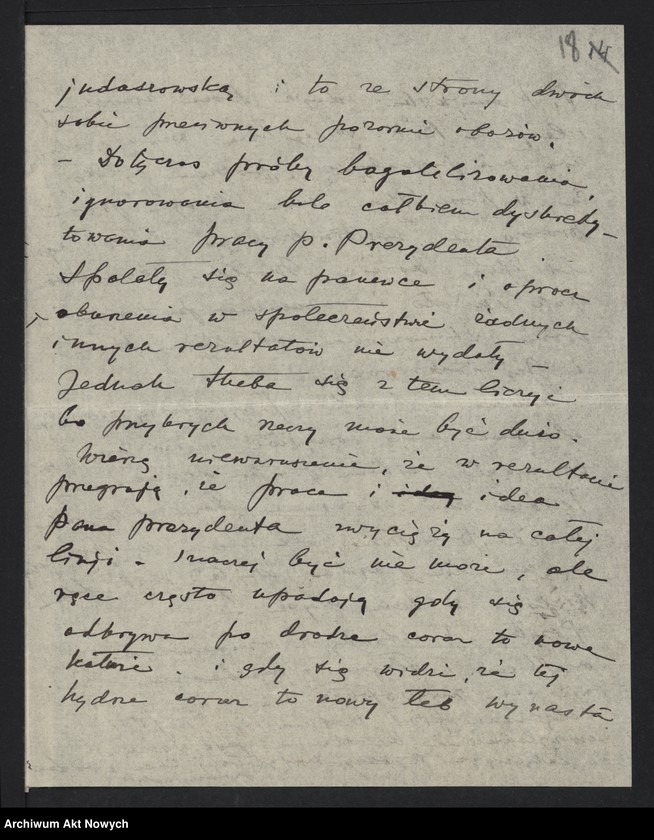 18
judaszowską i to ze strony dwóch
sobie przeciwnych pozornie obozów.
– Dotyczas próby bagatelizowania,
ignorowania lub całkiem dyskredy–
towania pracy p. Prezydenta
spalały się na panewce i oprócz
oburzenia w społeczeństwie żadnych
innych rezultatów nie wydały –
Jednak trzeba się z tem liczyć
bo przykrych rzeczy może być dużo.
Wierzę niewzruszenie, że w rezultacie
przegrają, że praca i idea
Pana prezydenta zwycięży na całej
linji – Inaczej być nie może, ale
ręce często upadają gdy się
odkrywa po drodze coraz to nowe
. i gdy się widzi, że tej
hydrze coraz to nowy łeb wyrasta
Archiwum Akt Nowych